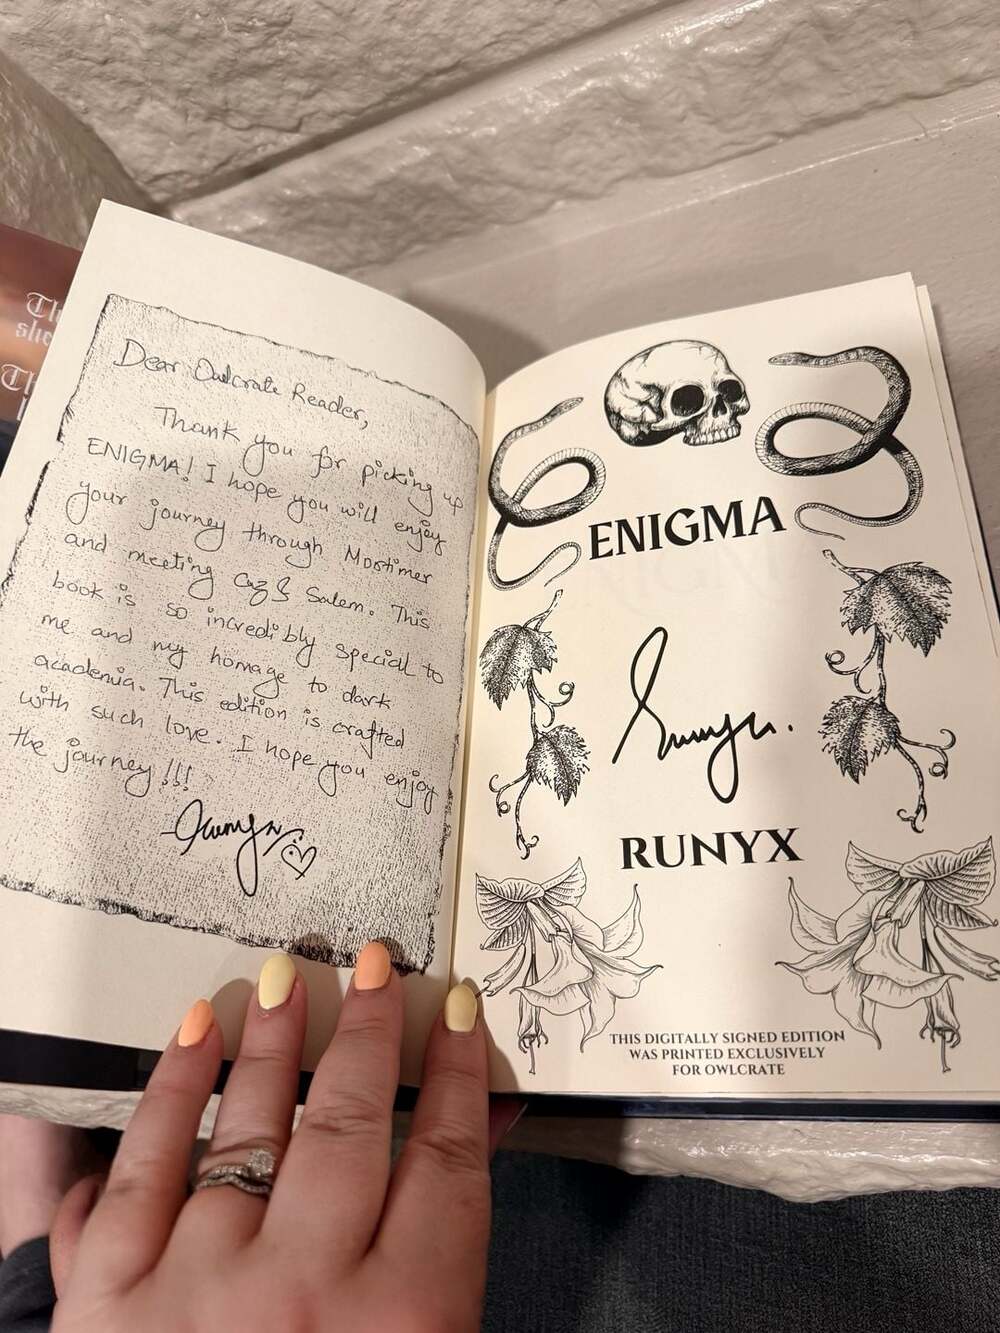 Dear Owlcrate Reader,
Thank you for picking up
ENIGMA! I hope you will enjoy
your journey through Mortimer
and meeting Caz & Salem. This
book is so incredibly special to
me and my homage to dark
academia. This edition is crafted
with such love. I hope you enjoy
the journey!!!
Runyx
ENIGMA
Runyx.
RUNYX
THIS DIGITALLY SIGNED EDITION
WAS PRINTED EXCLUSIVELY
FOR OWLCRATE